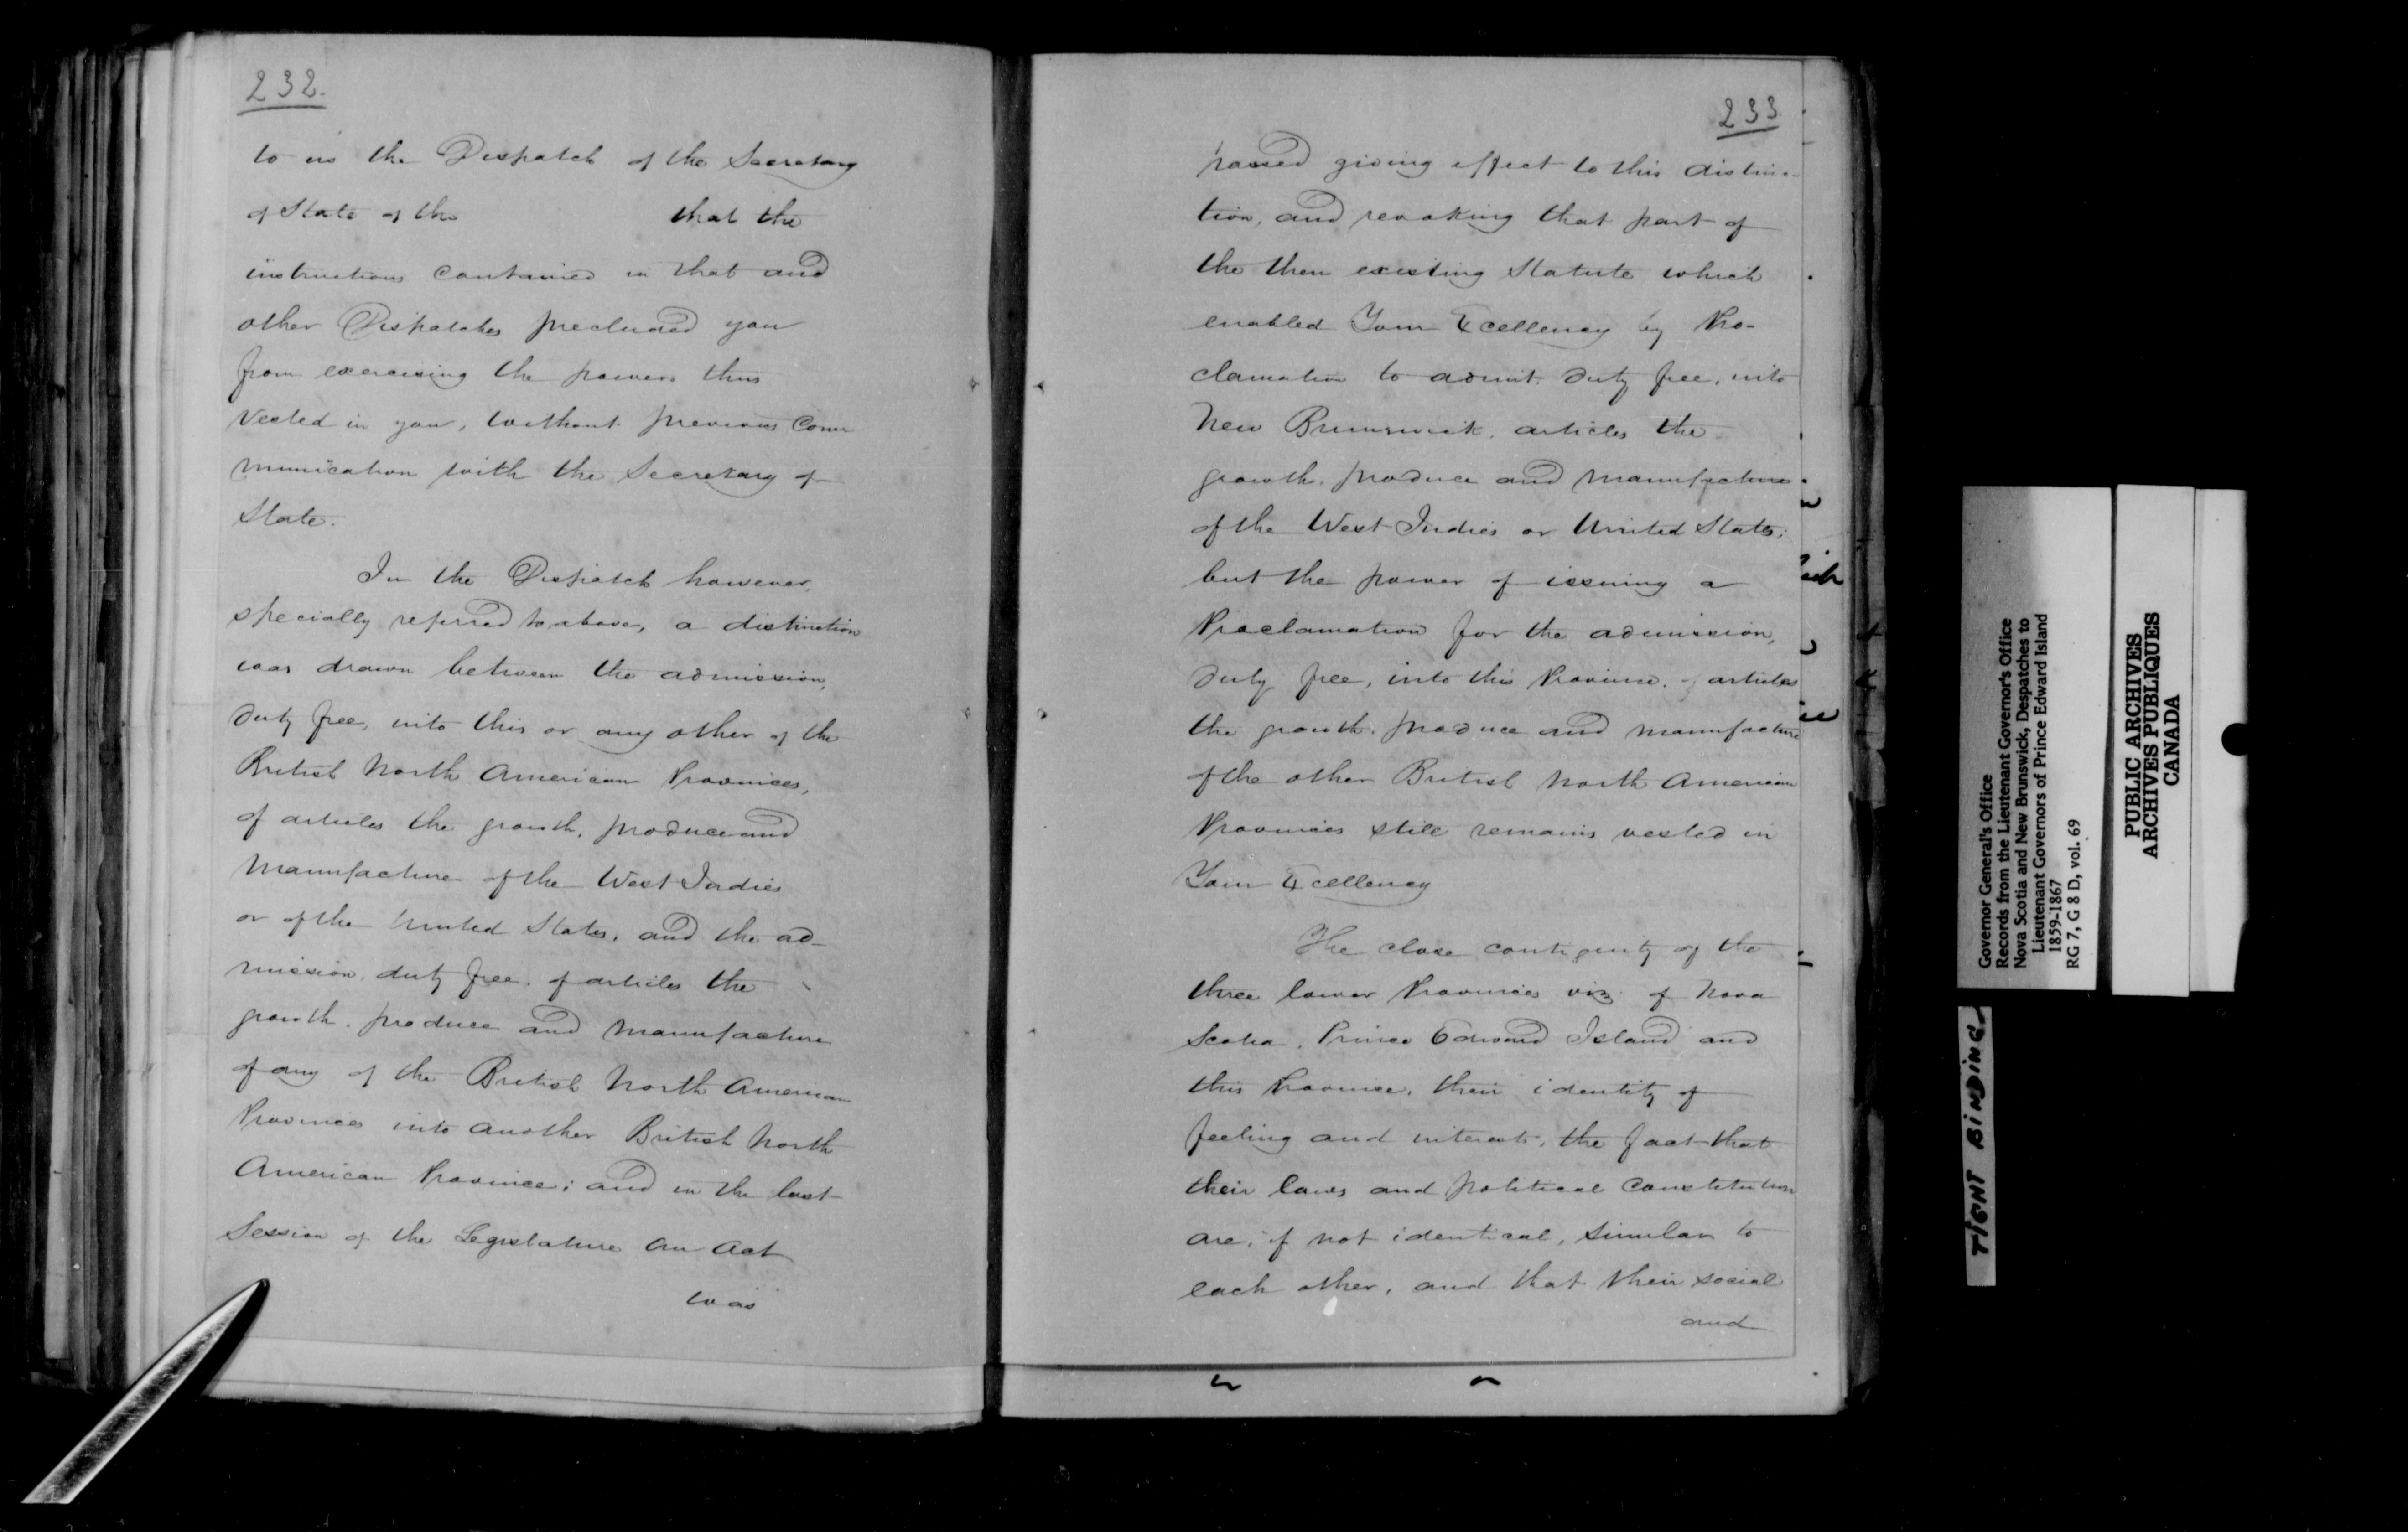 232.
to us the Dispatch of the Secretary
of State of the that the
instructions contained in that and
other Dispatches precluded you
from exercising the powers thus
vested in you, without previous Com
munication with the Secretary of
State.
In the Dispatch however,
specially referred to above, a distinction
was drawn between the admission,
duty free, into this or any other of the
British North American Provinces,
of articles the growth, produce and
manufacture of the West Indies
or of the United States, and the ad-
mission, duty free, of articles the
growth, produce and manufacture
of any of the British North American
Provinces into another British North
American Province; and in the last
Session of the Legislature an Act
was
233
passed giving effect to this distinc-
tion, and revoking that part of
the then existing Statute which
enabled Your Excellency by Pro-
clamation to admit, duty free, into
New Brunswick, articles the
growth, produce and manufacture
of the West Indies or United States;
but the power of issuing a
Proclamation for the admission,
duty free, into this Province, of articles
the growth, produce and manufacture
of the other British North American
Provinces still remains vested in
Your Excellency
The close contiguity of the
three lower Provinces viz. of Nova
Scotia, Prince Edward Island and
this Province, their identity of
feeling and interests, the fact that
their laws and political constitution
are, if not identical, similar to
each other, and that their social
and
Governor General's Office
Records from the Lieutenant Governor's Office
Nova Scotia and New Brunswick, Despatches to
Lieutenant Governors of Prince Edward Island
1859-1867
RG 7, G 8 D, vol. 69
PUBLIC ARCHIVES
ARCHIVES PUBLIQUES
CANADA
TIGHT BINDING